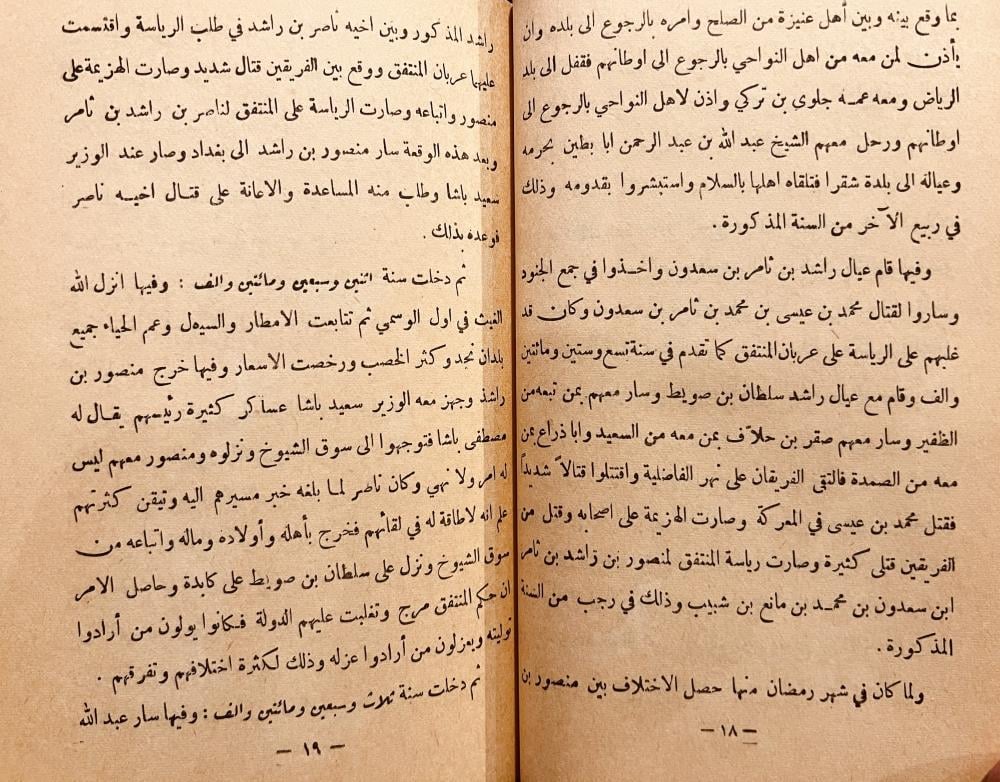 بما وقع بينه وبين أهل عنيزة من الصلح وامره بالرجوع الى بلده وان
يأذن لمن معه من اهل النواحي بالرجوع الى اوطانهم فقفل الى بلد
الرياض ومعه عمه جلوى بن تركي واذن لاهل النواحي بالرجوع الى
اوطانهم ورحل معهم الشيخ عبد الله بن عبد الرحمن ابا بطين بحرمه
وعياله الى بلدة شقرا فتلقاه اهلها بالسلام واستبشروا بقدومه وذلك
في ربيع الآخر من السنة المذكورة .
وفيها قام عيال راشد بن ثامر بن سعدون واخذوا في جمع الجنود
وساروا لقتال محمد بن عيسى بن محمد بن ثامر بن سعدون وكان قد
غلبهم على الرياسة على عربان المنتفق كما تقدم في سنة تسع وستين ومائتين
والف وقام مع عيال راشد سلطان بن صويط وسار معهم بمن تبعه من
الظفير وسار معهم صقر بن حلاف بمن معه من السعيد وابا ذراع بمن
معه من الصمدة فالتقى الفريقان على نهر الفاضلية واقتتلوا قتالاً شديداً
فقتل محمد بن عيسى في المعركة وصارت الهزيمة على اصحابه وقتل من
الفريقين قتلى كثيرة وصارت رياسة المنتفق لمنصور بن راشد بن ثامر
ابن سعدون بن محمد بن مانع بن شبيب وذلك في رجب من السنة
المذكورة .
ولما كان في شهر رمضان منها حصل الاختلاف بين منصور بن
— ١٨ —
راشد المذكور وبين اخيه ناصر بن راشد في طلب الرياسة واقتسمت
عليها عربان المنتفق ووقع بين الفريقين قتال شديد وصارت الهزيمة على
منصور واتباعه وصارت الرياسة على المنتفق لناصر بن راشد بن ثامر
وبعد هذه الوقعة سار منصور بن راشد الى بغداد وصار عند الوزير
سعيد باشا وطلب منه المساعدة والاعانة على قتال اخيه ناصر
فوعده بذلك .
ثم دخلت سنة اثنين وسبعين ومائتين والف : وفيها انزل الله
الغيث في اول الوسمي ثم تتابعت الامطار والسيول وعم الحياء جميع
بلدان نجد وكثر الخصب ورخصت الاسعار وفيها خرج منصور بن
راشد وجهز معه الوزير سعيد باشا عساكر كثيرة رئيسهم يقال له
مصطفى باشا فتوجهوا الى سوق الشيوخ ونزلوه ومنصور معهم ليس
له امر ولا نهي وكان ناصر لما بلغه خبر مسيرهم اليه وتيقن كثرتهم
علم انه لا طاقة له في لقائهم فخرج بأهله وأولاده وماله واتباعه من
سوق الشيوخ ونزل على سلطان بن صويط على كابدة وحاصل الامر
ان حكم المنتفق مرج وتغلبت عليهم الدولة فكانوا يولون من أرادوا
توليته ويعزلون من أرادوا عزله وذلك لكثرة اختلافهم وتفرقهم .
ثم دخلت سنة ثلاث وسبعين ومائتين والف : وفيها سار عبد الله
— ١٩ —